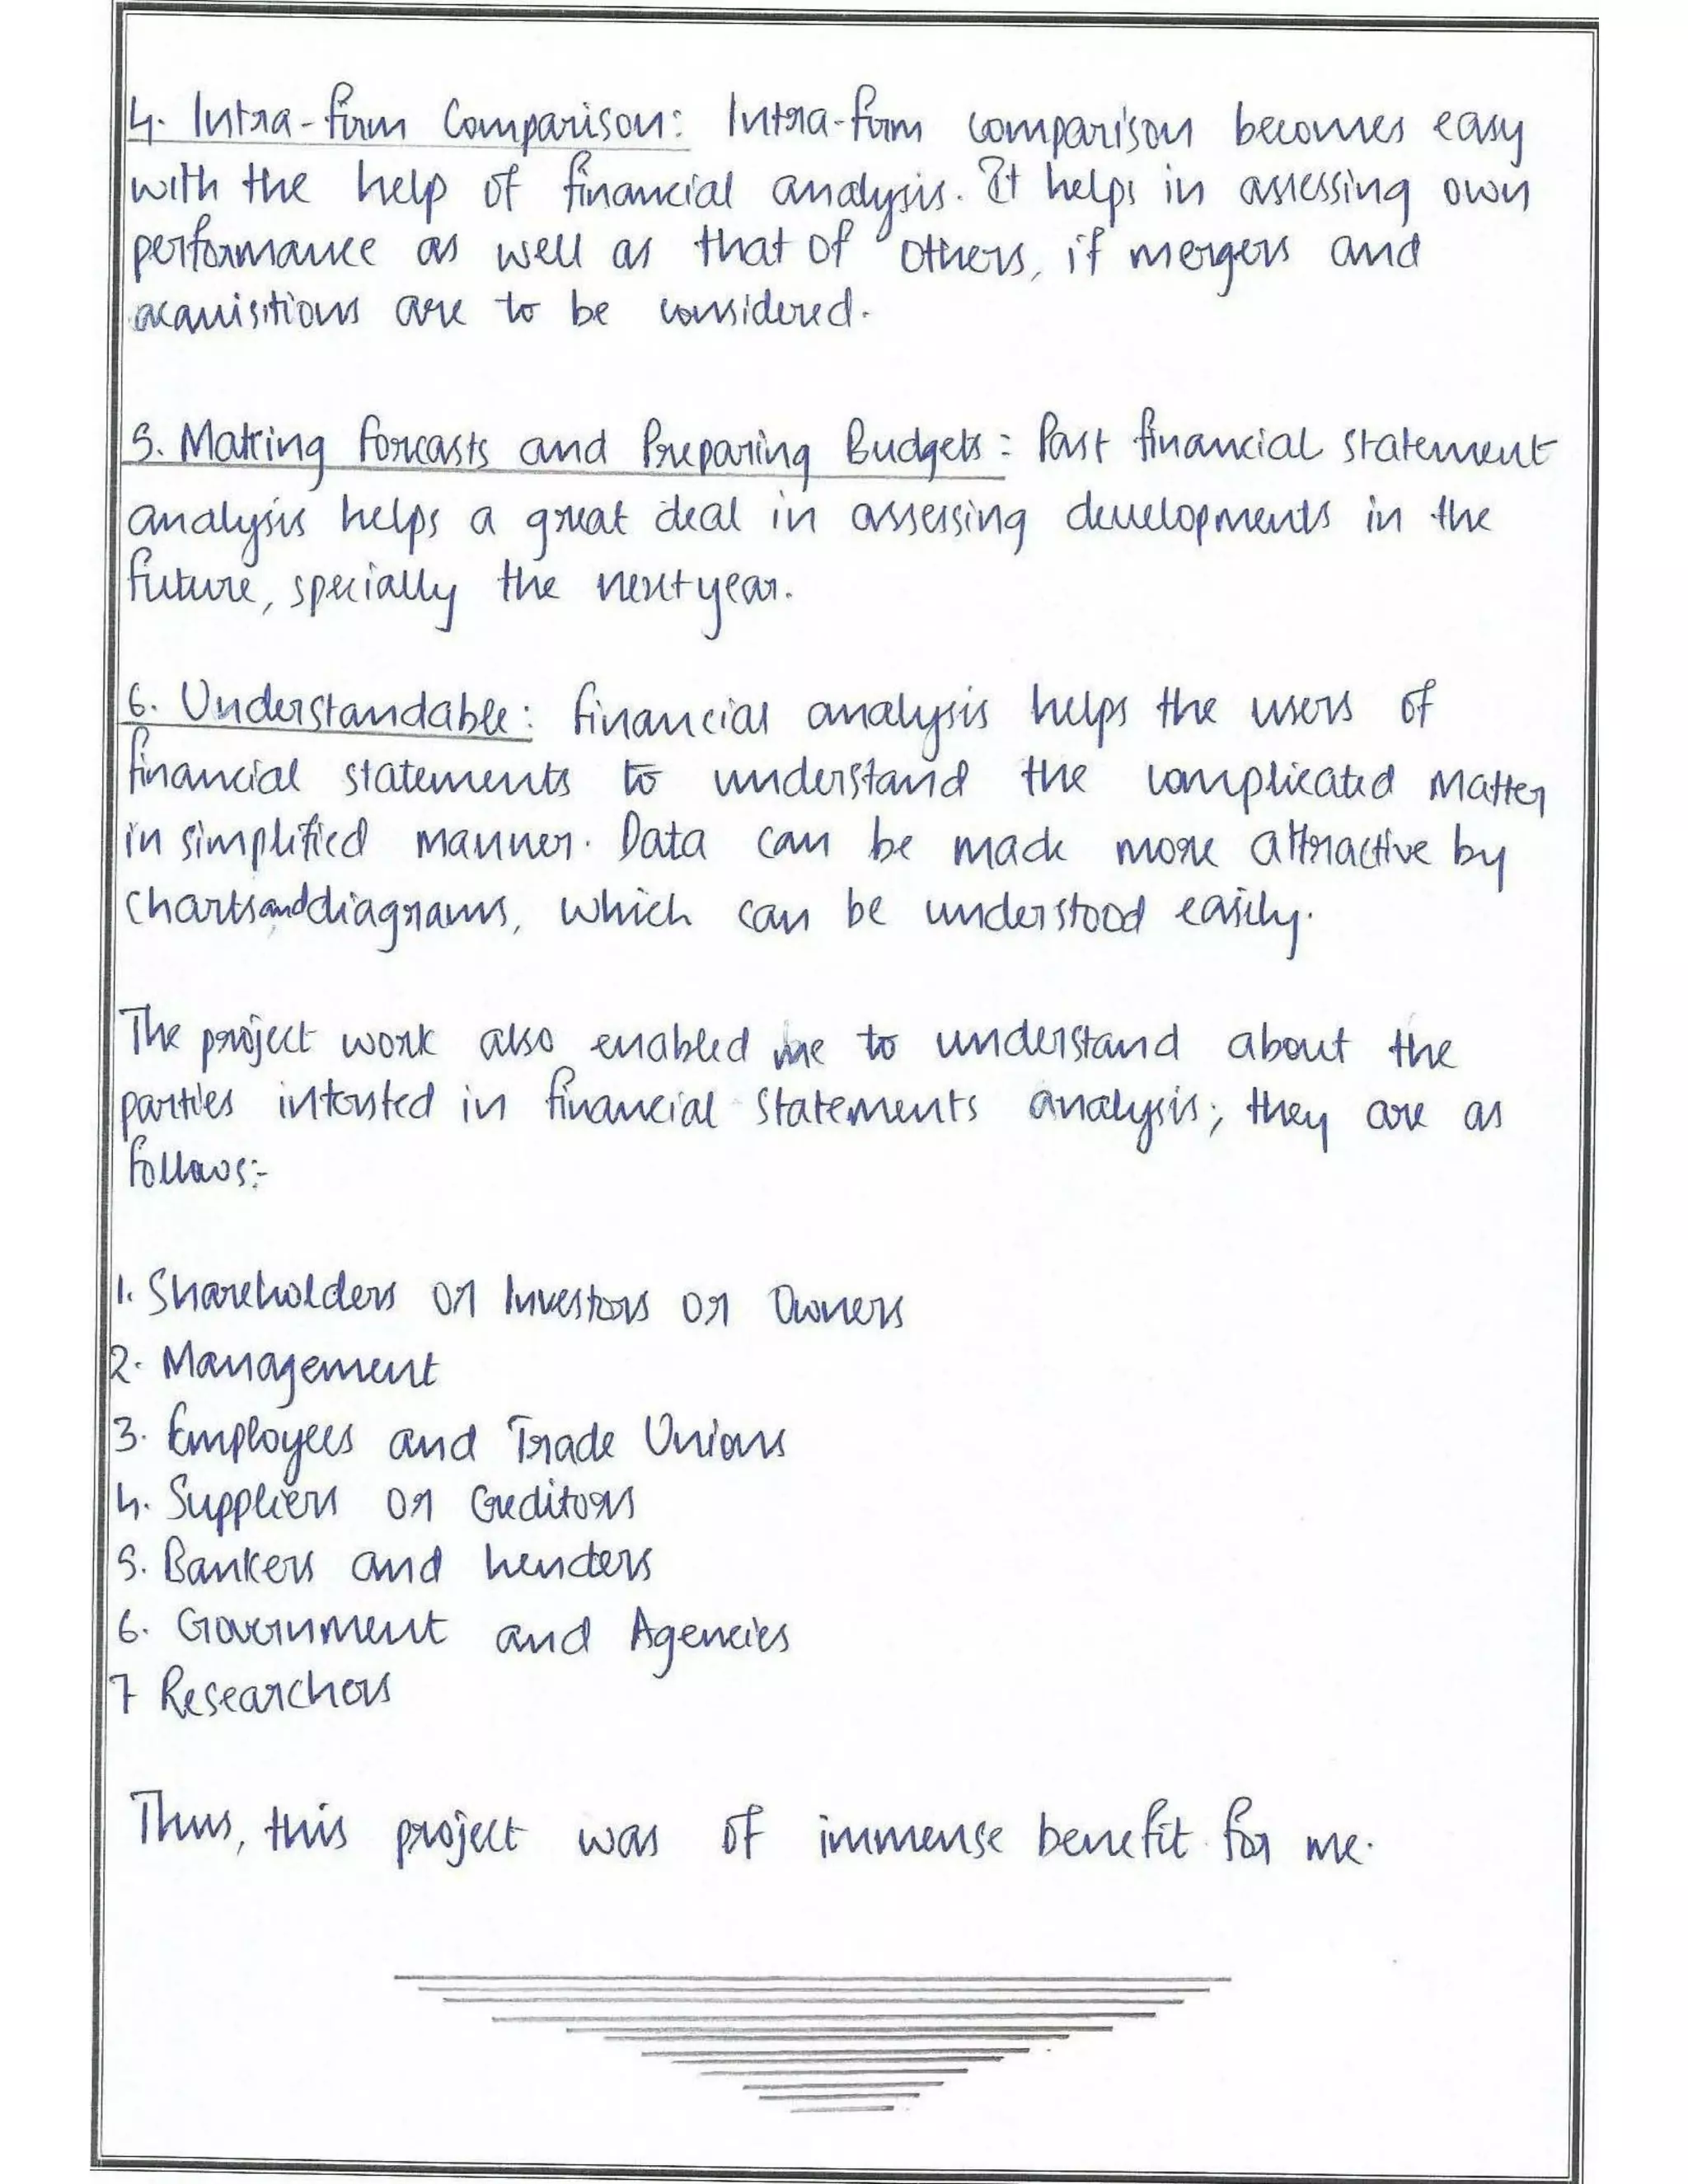 4. Intra-firm Comparison: Intra-firm comparison becomes easy
with the help of financial analysis. It helps in assessing own
performance as well as that of others, if mergers and
acquisitions are to be considered.
5. Making forcasts and Preparing Budgets: Past financial statement
analysis helps a great deal in assessing developments in the
future, specially the next year.
6. Understandable: financial analysis helps the users of
financial statements to understand the complicated Matter
in simplified manner. Data can be made more attractive by
charts and diagrams, which can be understood easily.
The project work also enabled me to understand about the
parties intersted in financial statements analysis; they are as
follows:-
1. Shareholders or Investors or Owners
2. Management
3. Employees and Trade Unions
4. Suppliers or Creditors
5. Bankers and Lenders
6. Government and Agencies
7 Researchers
Thus, this project was of immense benefit for me.